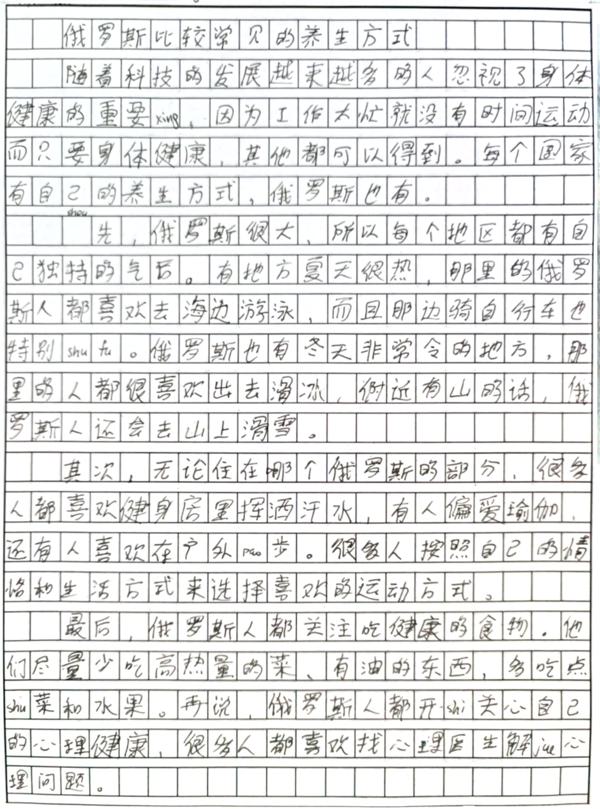 俄罗斯比较常见的养生方式
随着科技的发展越来越多的人忽视了身体
健康的重要xing，因为工作太忙就没有时间运动
而只要身体健康，其他都可以得到。每个国家
有自己的养生方式，俄罗斯也有。
shou
先，俄罗斯很大，所以每个地区都有自
己独特的气后。有地方夏天很热，那里的俄罗
斯人都喜欢去海边游泳，而且那边骑自行车也
特别shu fu。俄罗斯也有冬天非常令的地方，那
里的人都很喜欢出去滑冰，附近有山的话，俄
罗斯人还会去山上滑雪。
其次，无论住在哪个俄罗斯的部分，很多
人都喜欢健身房里挥洒汗水，有人偏爱瑜伽，
还有人喜欢在户外pao步。很多人按照自己的情
恪和生活方式来选择喜欢的运动方式。
最后，俄罗斯人都关注吃健康的食物。他
们尽量少吃高热量的菜、有油的东西，多吃点
shu菜和水果。再说，俄罗斯人都开shi关心自己
的心理健康，很多人都喜欢找心理医生解jue心
理问题。